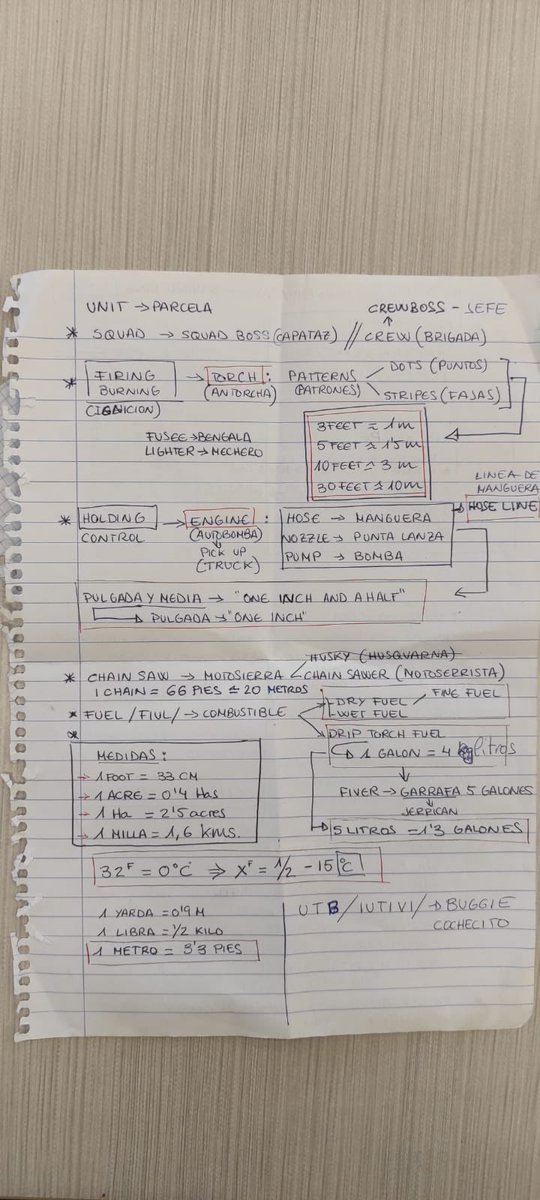 UNIT → PARCELA
CREWBOSS - JEFE
* SQUAD → SQUAD BOSS (CAPATAZ) // CREW (BRIGADA)
* FIRING → TORCH : PATTERNS DOTS (PUNTOS)
BURNING (ANTORCHA) (PATRONES) STRIPES (FAJAS)
(IGNICION)
FUSEE → BENGALA
LIGHTER → MECHERO
3 FEET ≃ 1m
5 FEET ≃ 1'5m
10 FEET ≃ 3 m
30 FEET ≃ 10m
LINEA DE
MANGUERA
HOSE LINE
* HOLDING → ENGINE : HOSE → MANGUERA
CONTROL (AUTOBOMBA) NOZZLE → PUNTA LANZA
PICK UP PUMP → BOMBA
(TRUCK)
PULGADA Y MEDIA → "ONE INCH AND A HALF"
PULGADA → "ONE INCH"
HUSKY (HUSQVARNA)
* CHAIN SAW → MOTOSIERRA CHAIN SAWER (MOTOSERRISTA)
1 CHAIN = 66 PIES ≃ 20 METROS
* FUEL /FIUL/ → COMBUSTIBLE - DRY FUEL FINE FUEL
- WET FUEL
*
DRIP TORCH FUEL
1 GALON = 4 litros
MEDIDAS :
→ 1 FOOT = 33 CM
→ 1 ACRE = 0'4 Has
→ 1 Ha = 2'5 acres
→ 1 MILLA = 1,6 kms.
FIVER → GARRAFA 5 GALONES
JERRICAN
5 LITROS = 1'3 GALONES
32F = 0°C ⇒ XF = 1/2 - 15 °C
1 YARDA = 0'9 M
1 LIBRA = 1/2 KILO
1 METRO = 3'3 PIES
UTB / IUTIVI / → BUGGIE
COCHECITO